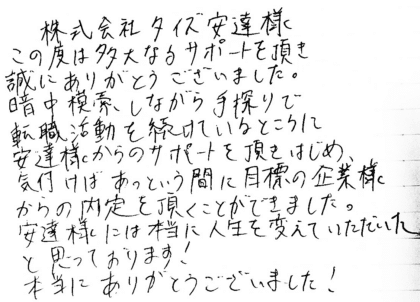 株式会社タイズ安達様
この度は多大なるサポートを頂き
誠にありがとうございました。
暗中模索しながら手探りで
転職活動を続けているところに
安達様からのサポートを頂きはじめ、
気付けばあっという間に目標の企業様
からの内定を頂くことができました。
安達様には本当に人生を変えていただいた
と思っております!
本当にありがとうございました!